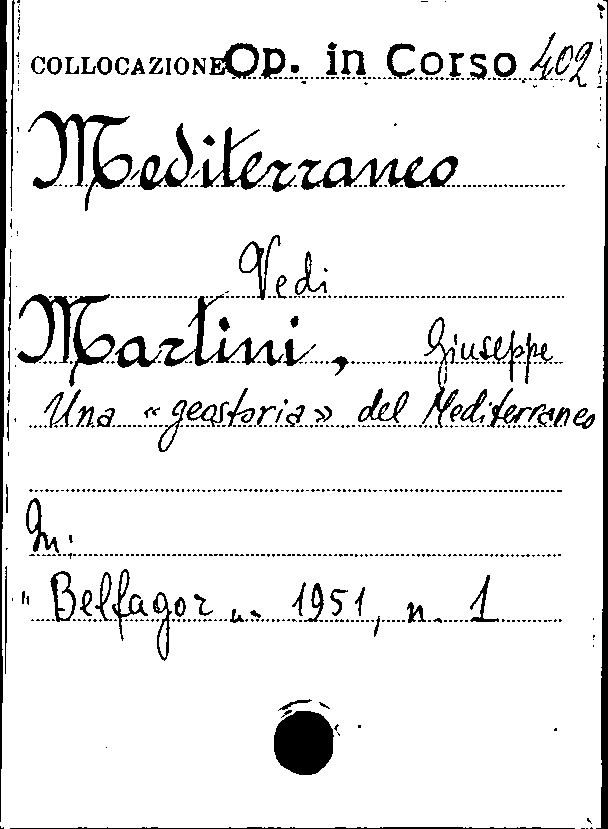 COLLOCAZIONE Op. in Corso 402
Mediterraneo
Vedi
Martini, Giuseppe
Una « geostoria » del Mediterraneo
In:
" Belfagor „ - 1951, n. 1